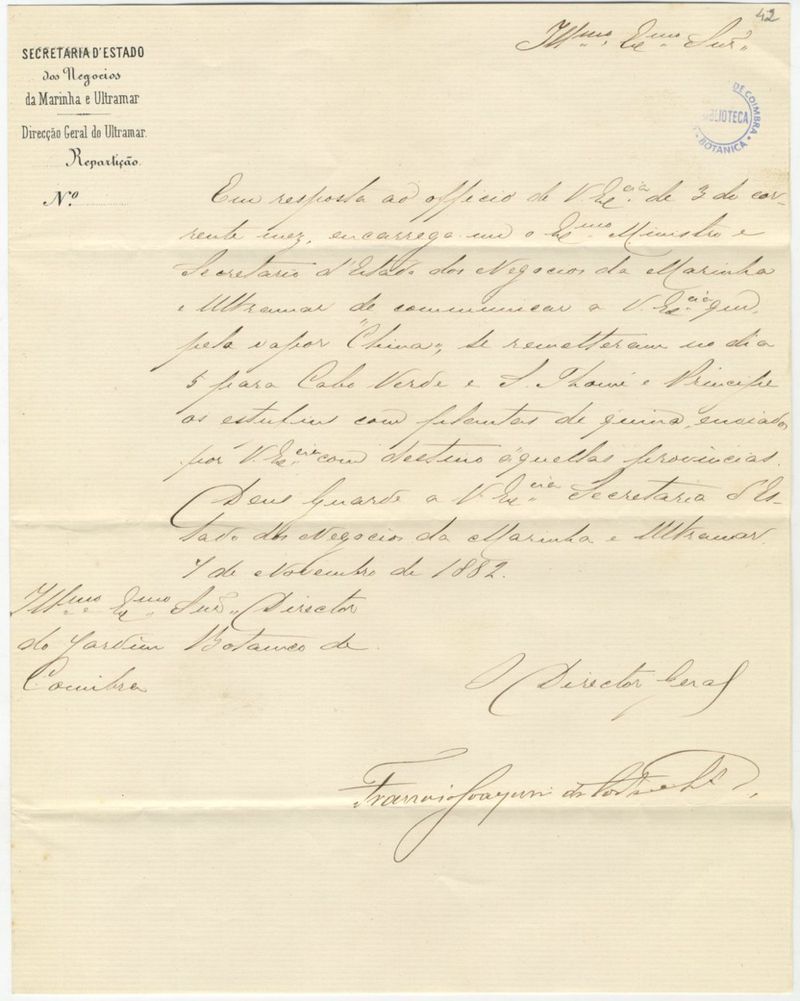 42
Illmo. Exmo. Snr.
SECRETARIA D'ESTADO
dos Negocios
da Marinha e Ultramar
Direcção Geral do Ultramar.
Repartição
N.º
BIBLIOTECA
BOTANICA
DE COIMBRA
Em resposta ao officio de V. Excia. de 3 do cor-
rente mez, encarrega-me o Exmo. Ministro e
Secretario d'Estado dos Negocios da Marinha
e Ultramar de communicar a V. Excia. que,
pelo vapor "China", se remetteram no dia
5 para Cabo Verde e S. Thomé e Principe
as estufins com plantas de quina, enviadas
por V. Excia. com destino áquellas provincias.
Deus Guarde a V. Excia. Secretaria d'Es-
tado dos Negocios da Marinha e Ultramar.
7 de Novembro de 1882.
Illmo. Exmo. Snr. Director
do Jardim Botanico de
Coimbra
O Director Geral
Francisco Joaquim da Costa e Sª